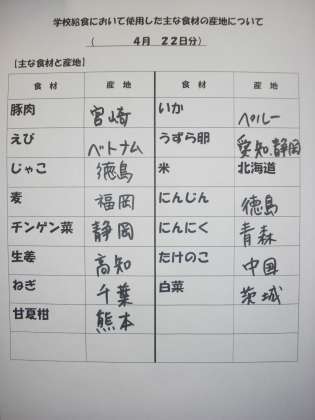 学校給食において使用した主な食材の産地について
（　　　４月　２２日分）
【主な食材と産地】
食　材　産　地　食　材　産　地
豚肉　宮崎　いか　ペルー
えび　ベトナム　うずら卵　愛知、静岡
じゃこ　徳島　米　北海道
麦　福岡　にんじん　徳島
チンゲン菜　静岡　にんにく　青森
生姜　高知　たけのこ　中国
ねぎ　千葉　白菜　茨城
甘夏柑　熊本